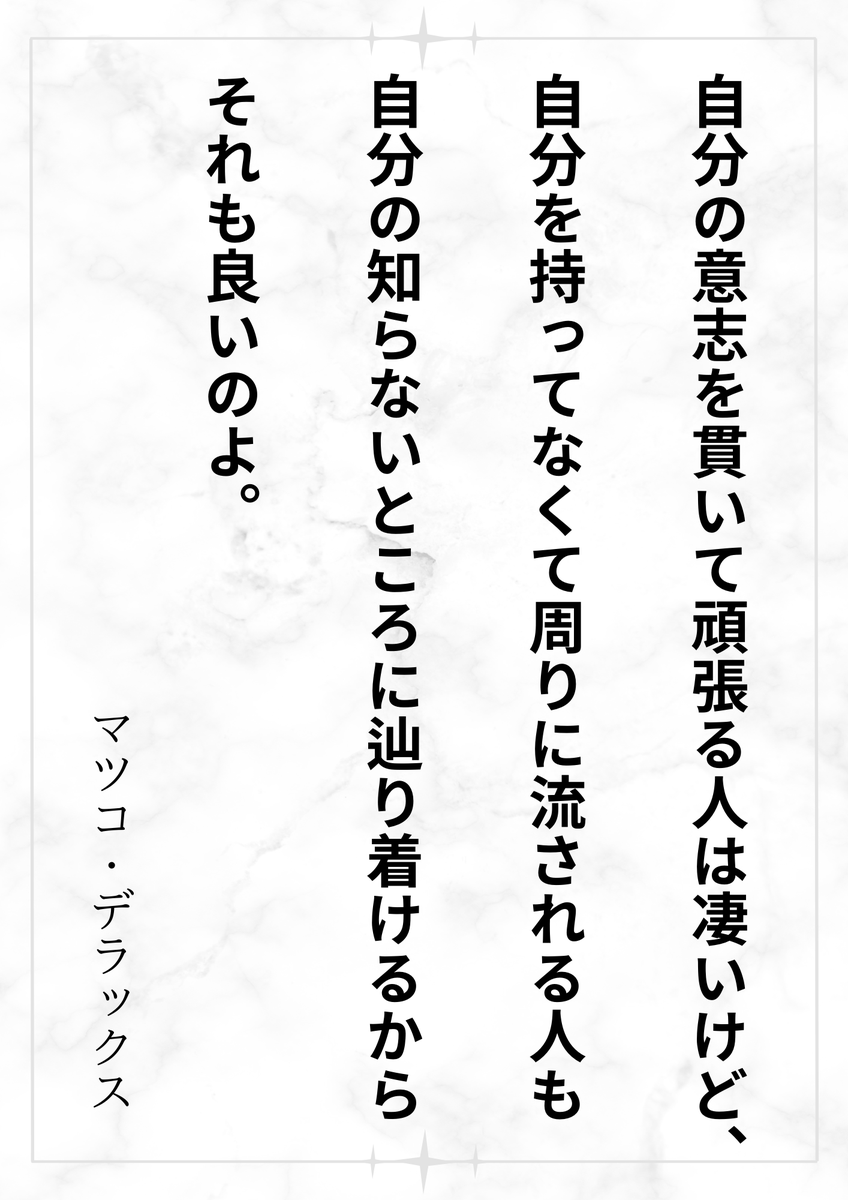 自分の意志を貫いて頑張る人は凄いけど、
自分を持ってなくて周りに流される人も
自分の知らないところに辿り着けるから
それも良いのよ。
マツコ・デラックス